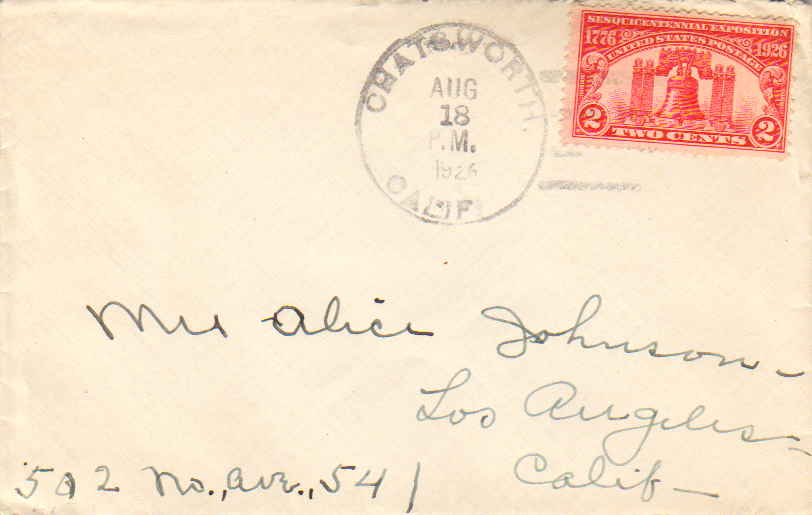 SESQUICENTENNIAL EXPOSITION
1776 1926
UNITED STATES POSTAGE
2 TWO CENTS 2
CHATSWORTH.
AUG
18
P.M.
1926
CALIF.
Mrs Alice Johnson-
Los Angeles-
Calif-
512 No., Ave., 54